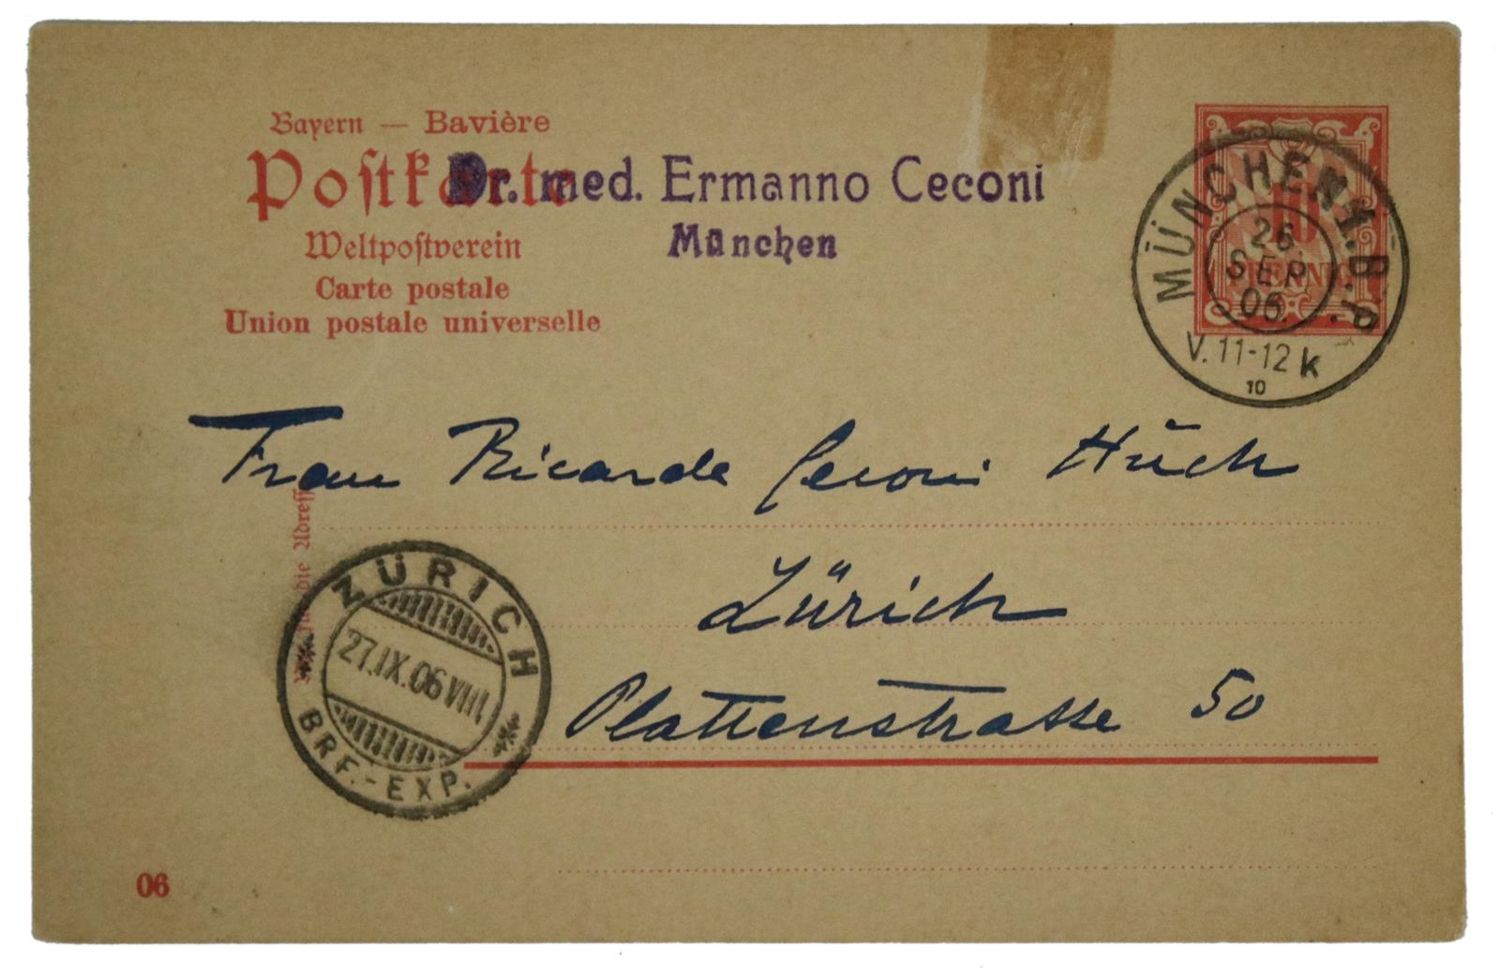 Bayern — Bavière
Postkarte
Dr. med. Ermanno Ceconi
München
Weltpostverein
Carte postale
Union postale universelle
10
PFENNIG
MÜNCHEN 1. B.P.
26
SEP
06.
V. 11-12 k
10
Frau Ricarda Ceconi Huch
Zürich
Plattenstrasse 50
die Adresse
ZÜRICH
27.IX.06 VIII
BRF.-EXP.
06